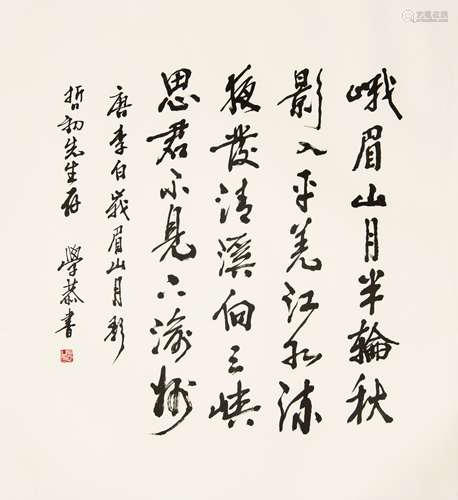 峨眉山月半輪秋
影入平羌江水流
夜發清溪向三峽
思君不見下渝州
唐李白峨眉山月歌
哲初先生存 學恭書